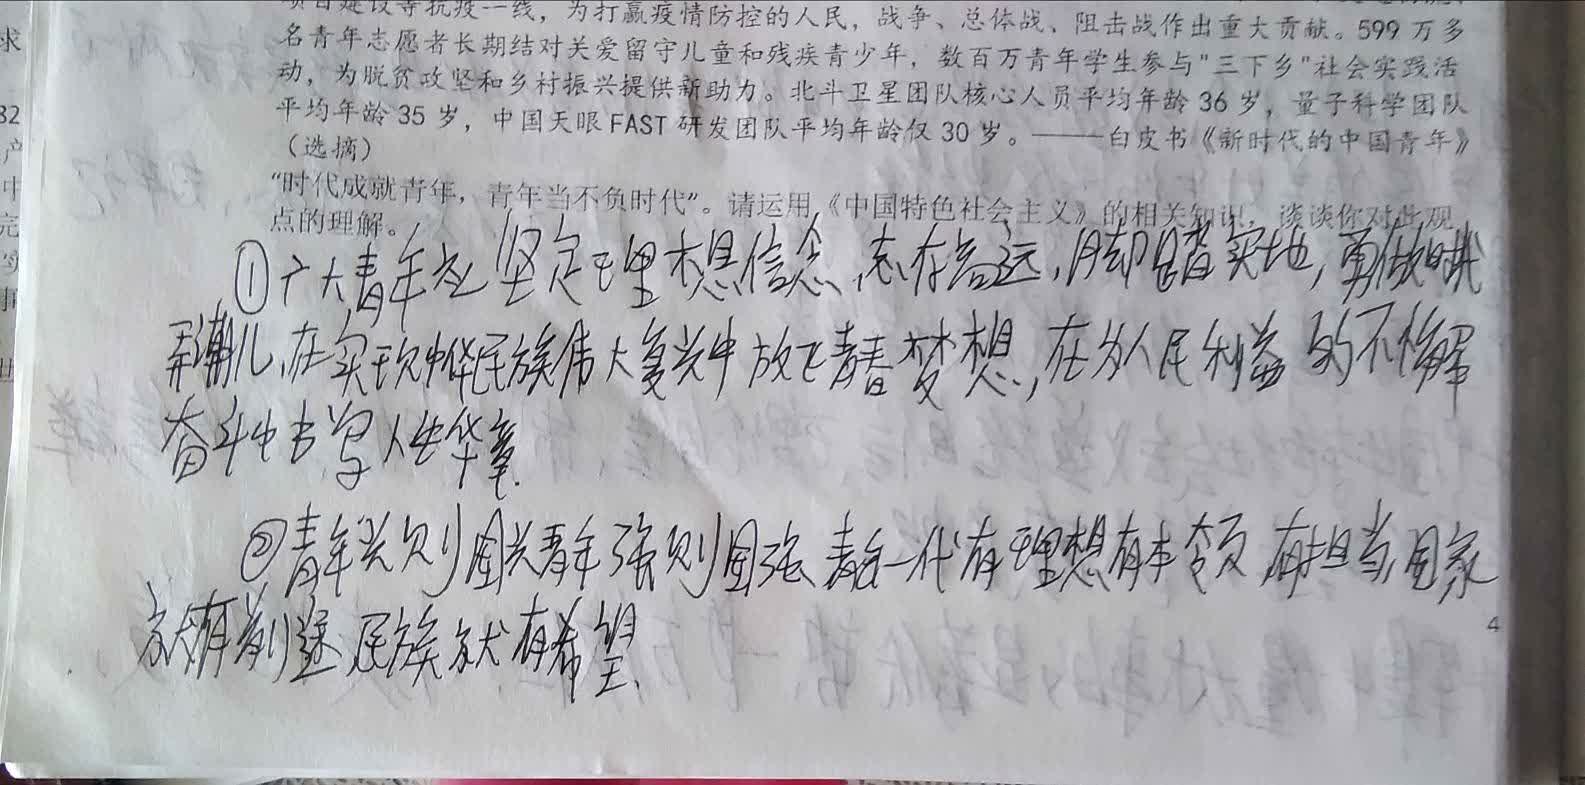 项目建设等抗疫一线，为打赢疫情防控的人民，战争、总体战、阻击战作出重大贡献。599万多
名青年志愿者长期结对关爱留守儿童和残疾青少年，数百万青年学生参与"三下乡"社会实践活
动，为脱贫攻坚和乡村振兴提供新助力。北斗卫星团队核心人员平均年龄36岁，量子科学团队
平均年龄35岁，中国天眼FAST研发团队平均年龄仅30岁。——白皮书《新时代的中国青年》
（选摘）
“时代成就青年，青年当不负时代”。请运用《中国特色社会主义》的相关知识，谈谈你对此观
点的理解。
①广大青年应坚定理想信念，志存高远，脚踏实地，勇做时代
弄潮儿，在实现中华民族伟大复兴中放飞青春梦想，在为人民利益的不懈
奋斗中书写人生华章.
②青年兴则国兴青年强则国强 青年一代有理想有本领 有担当，国家
就有前途，民族就有希望.
4
求
32
产
中
完
实